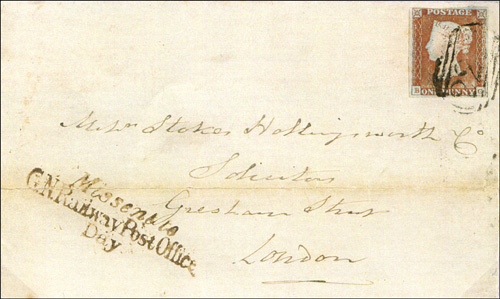 POSTAGE
ONE PENNY
Messrs Stokes Hollingsworth & Co
Solicitors
Gresham Street
London
Missent to
G.N. Railway Post Office
Day